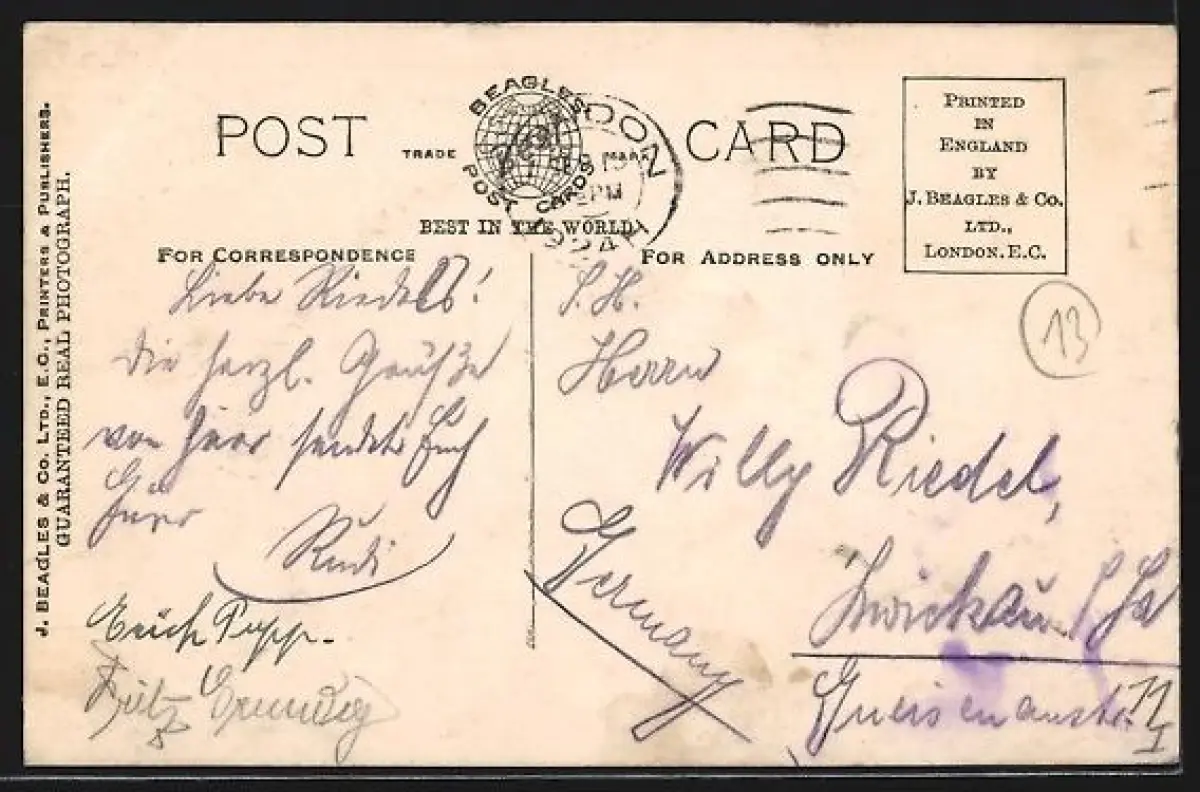 J. BEAGLES & CO. LTD., E.C., PRINTERS & PUBLISHERS.
GUARANTEED REAL PHOTOGRAPH.
POST CARD
BEAGLES'
TRADE MARK
POST CARDS
BEST IN THE WORLD
LONDON
PM
1924
PRINTED
IN
ENGLAND
BY
J. BEAGLES & CO.
LTD.,
LONDON. E.C.
FOR CORRESPONDENCE
FOR ADDRESS ONLY
13
Liebe Riedels!
Die herzl. Grüße
von hier sendet Euch
Euer
Rudi
Erich Popp.
Fritz
S. H.
Herrn
Willy Riedel,
Zwickau i/Sa
Gneisenaustr. 11
I
Germany